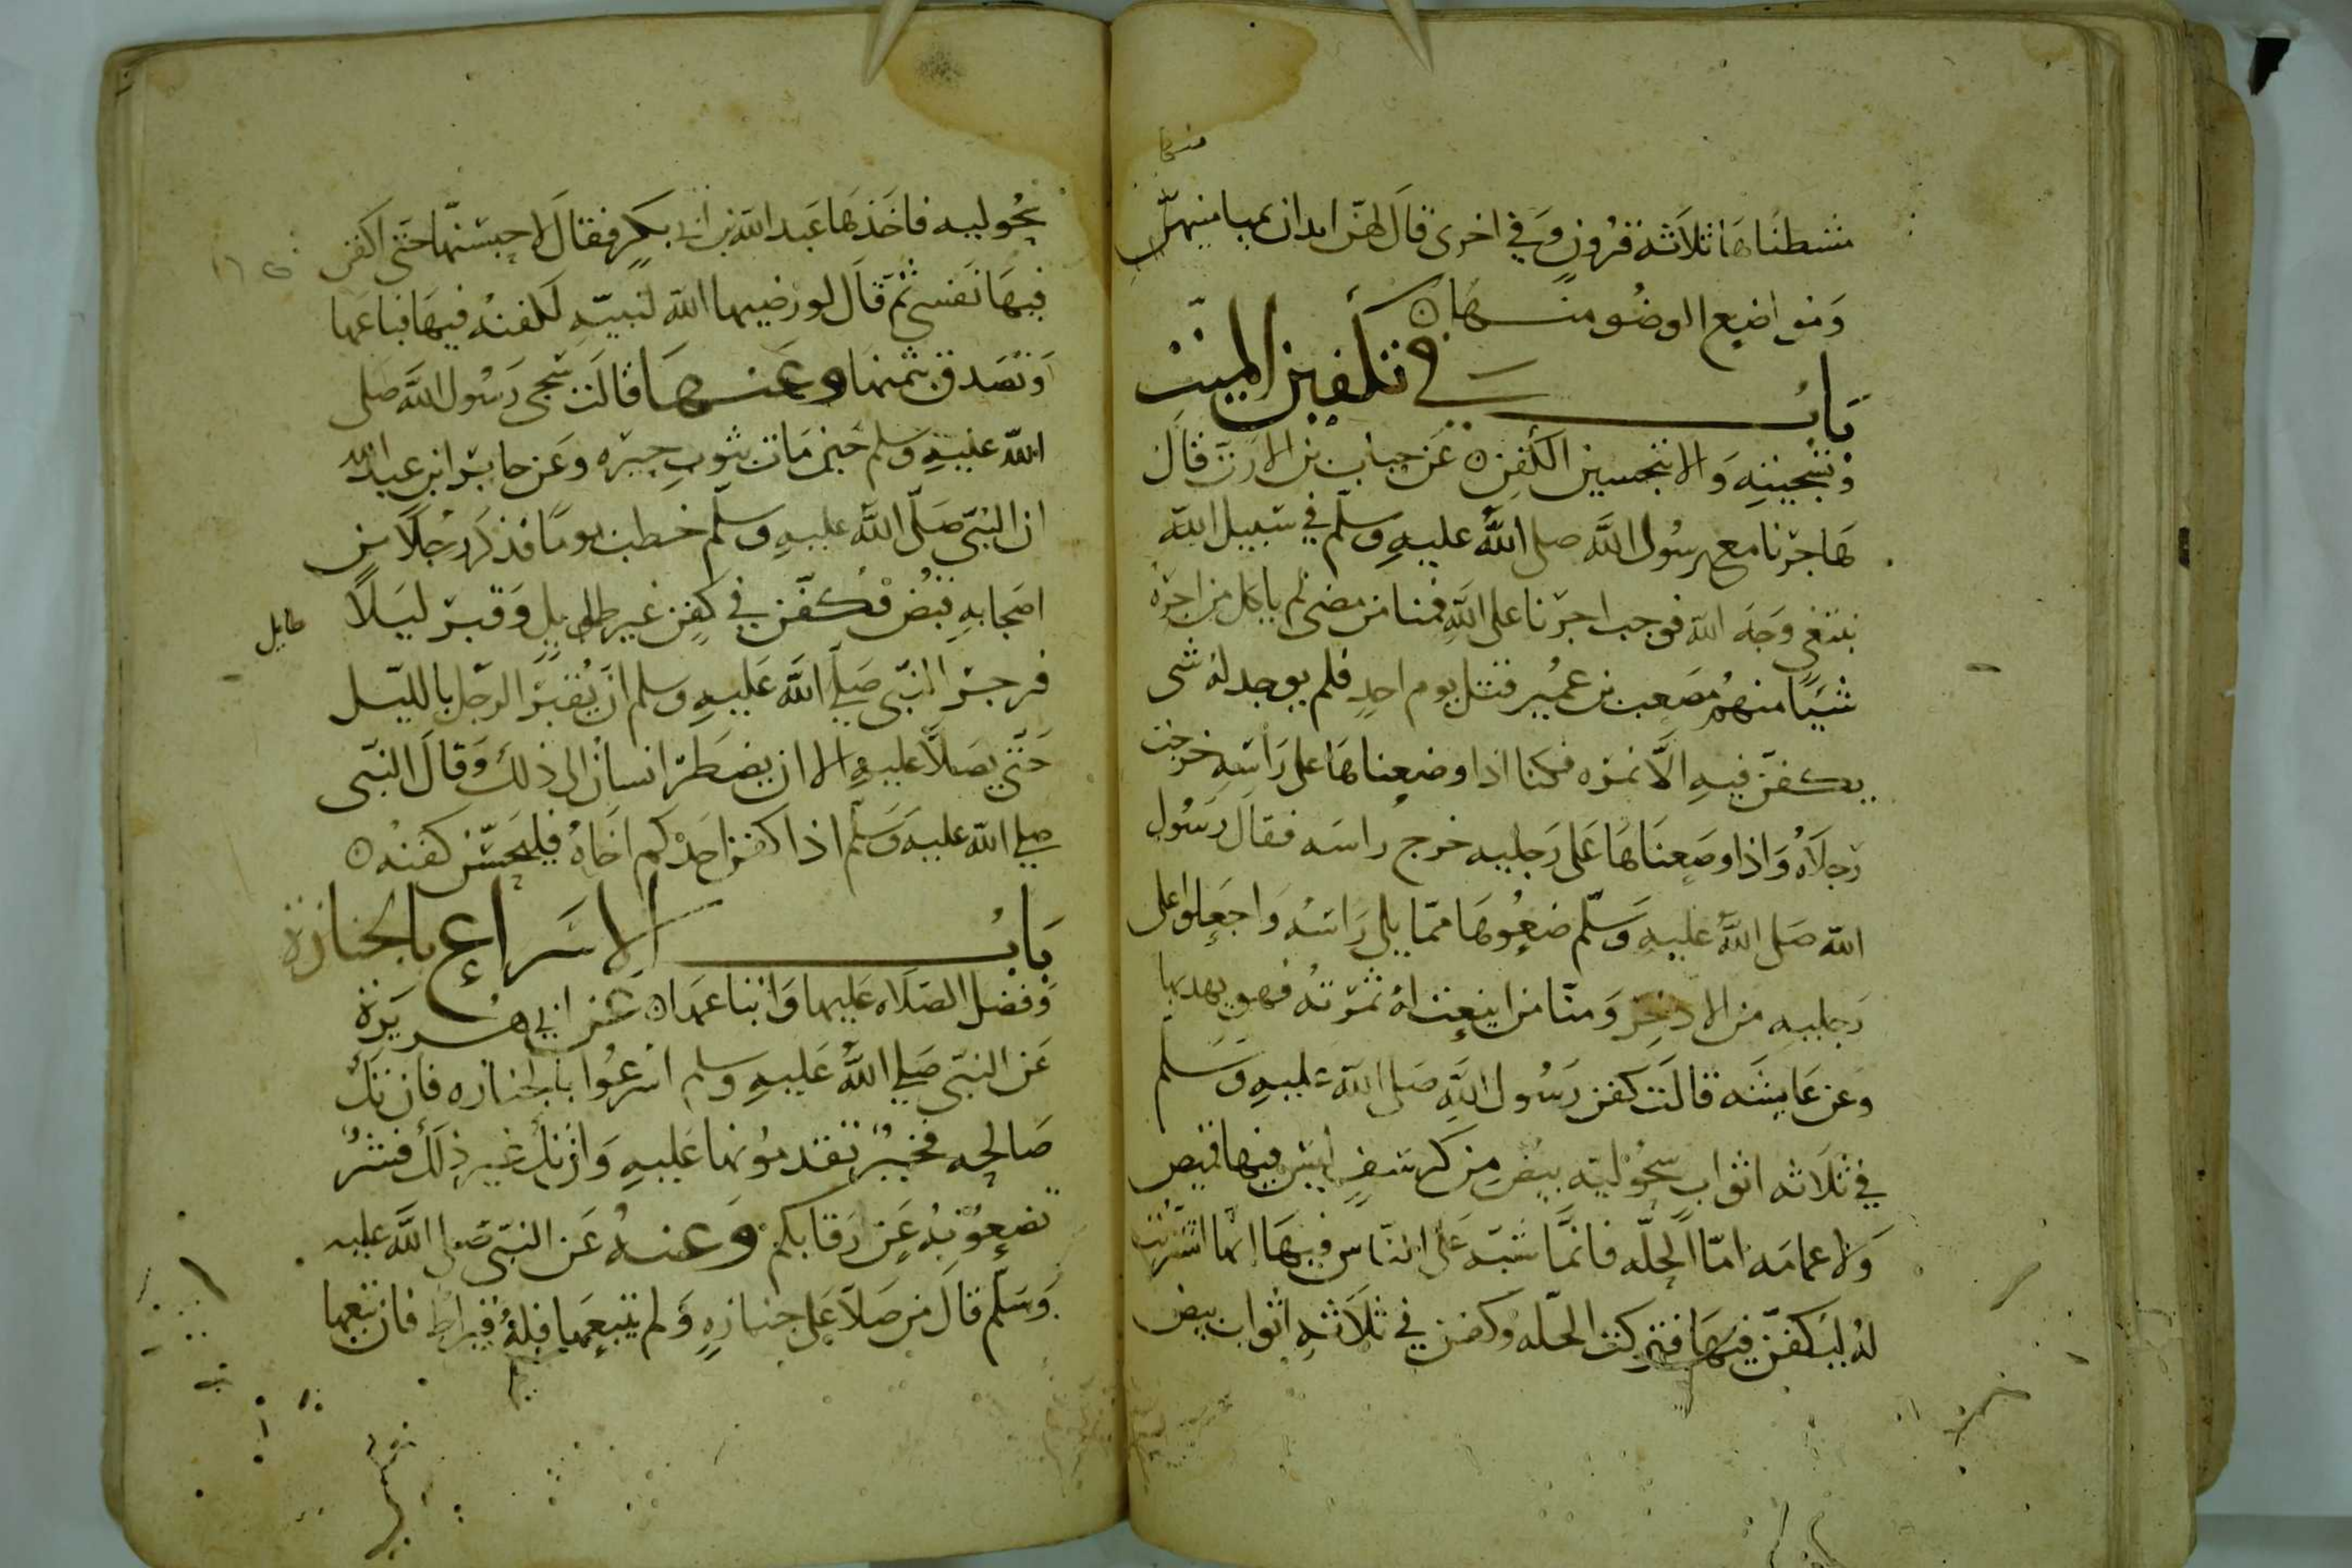 منها
مشطناها ثلاثة قرون وفي اخرى قال لهن ابدان بميامنهن
ومواضع الوضو منها
باب في تكفين الميت
وتسجيته والا بتحسين الكفن عن خباب بن الارت قال
هاجرنا مع رسول الله صلى الله عليه وسلم في سبيل الله
نبتغي وجه الله فوجب اجرنا على الله فمنا من مضى لم ياكل من اجره
شيا منهم مصعب بن عمير قتل يوم احد فلم يوجد له شى
يكفن فيه الا نمره فكنا اذا وضعناها على راسه خرجت
رجلاه واذا وضعناها على رجليه خرج راسه فقال رسول
الله صلى الله عليه وسلم ضعوها مما يلى راسه واجعلوا على
رجليه من الاذخر ومنا من اينعت له ثمرته فهو يهدبها
وعن عايشه قالت كفن رسول الله صلى الله عليه وسلم
في ثلاثه اثواب سحوليه بيض من كرسف ليس فيها قميص
ولا عمامه اما الحله فانما شبه على الناس فيها انما اشتريت
له ليكفن فيها فتركت الحله وكفن في ثلاثه اثواب بيض
سحوليه فاخذها عبد الله بن ابي بكر فقال لاحبسنها حتى اكفن
فيها نفسي ثم قال لو رضيها الله لنبيه لكفنه فيها فباعها
وتصدق بثمنها وعنها قالت سجى رسول الله صلى
الله عليه وسلم حين مات بثوب حبره وعن جابر ابن عبد الله
ان النبي صلى الله عليه وسلم خطب يوما فذكر رجلا من
اصحابه قبض فكفن في كفن غير طايل وقبر ليلا
طايل
فزجر النبي صلي الله عليه وسلم ان يقبر الرجل بالليل
حتى يصلا عليه الا ان يضطر انسان الى ذلك وقال النبي
صلي الله عليه وسلم اذا كفن احدكم اخاه فليحسن كفنه
باب الاسراع بالجنازة
وفضل الصلاه عليها واتباعها عن ابي هريرة
عن النبي صلي الله عليه وسلم اسرعوا بالجنازه فان تك
صالحه فخير تقدمونها عليه وان تك غير ذلك فشر
تضعونه عن رقابكم وعنه عن النبي صلى الله عليه
وسلم قال من صلا على جنازه ولم يتبعها فله قيراط فان تبعها